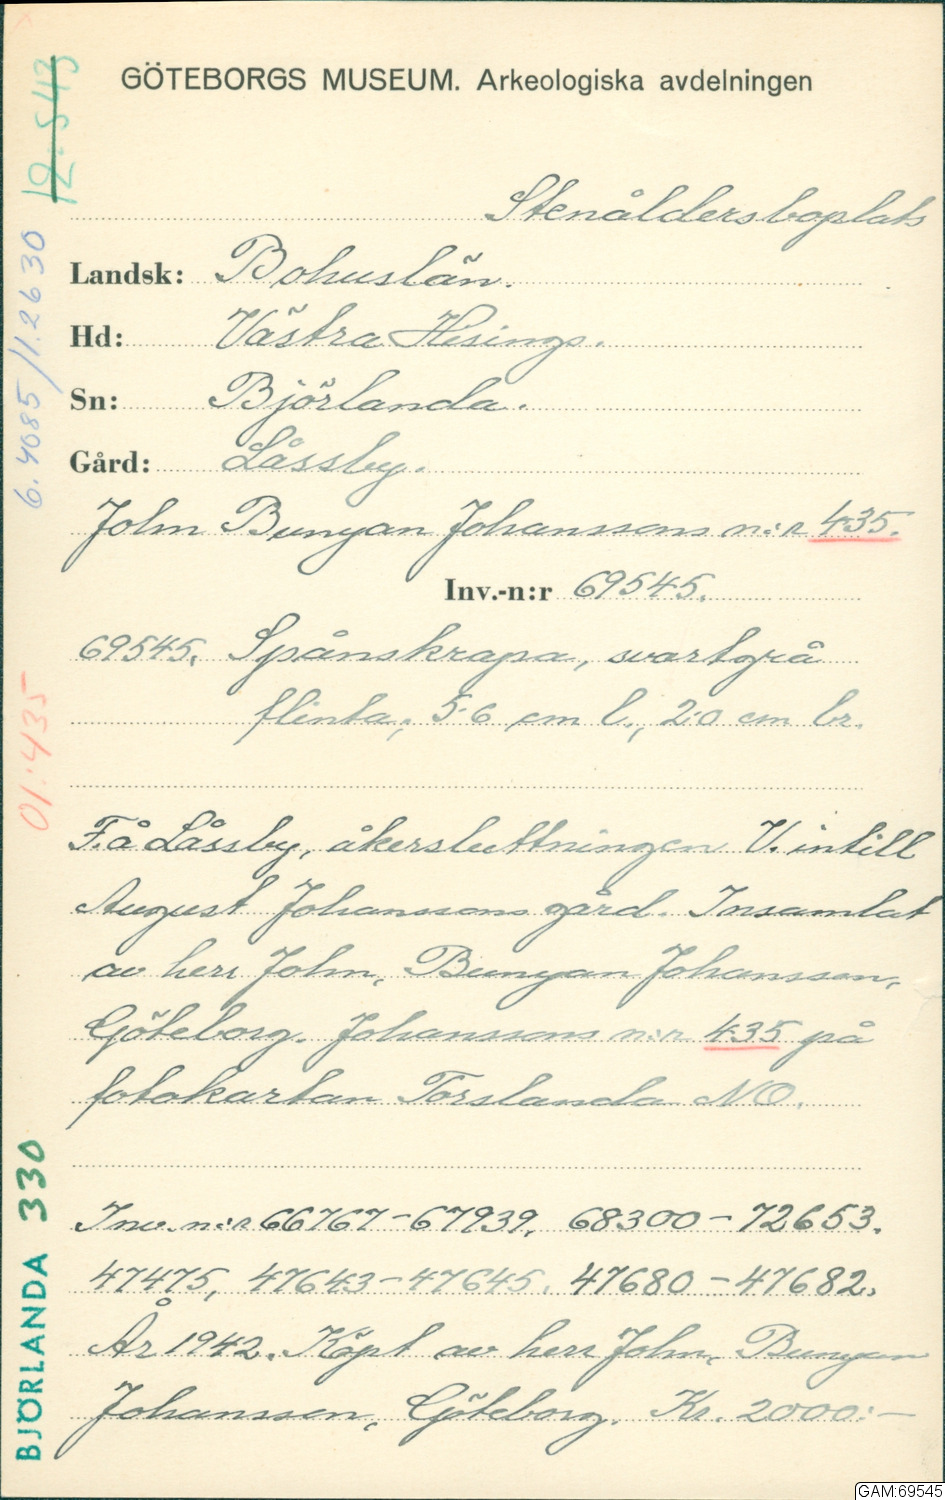 GÖTEBORGS MUSEUM. Arkeologiska avdelningen
Stenåldersboplats
Landsk: Bohuslän.
Hd: Västra Hisings.
Sn: Björlanda.
Gård: Låssby.
John Bunyan Johanssons n:r 435.
Inv.-n:r 69545.
69545. Spånskrapa, svartgrå
flinta, 5.6 cm l., 2.0 cm br.
F.å Låssby, åkersluttningen V. intill
August Johanssons gård. Insamlat
av herr John, Bunyan Johansson,
Göteborg. Johanssons n:r 435 på
fotokartan Torslanda NO.
Inv. n:r 66767-67939, 68300-72653.
47475, 47643-47645. 47680-47682.
År 1942. Köpt av herr John, Bunyan
Johansson, Göteborg. Kr. 2000:-
12.543
6.4085/1.2630
01:435
BJÖRLANDA 330
GAM:69545